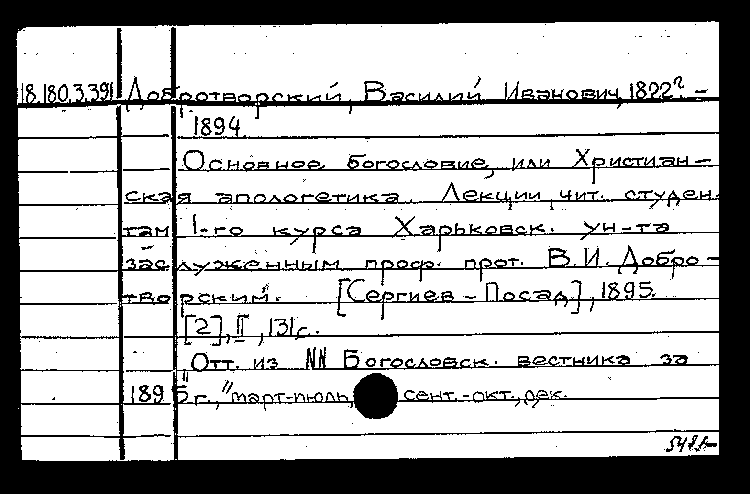 18.180.3.391 Добротворский, Василий Иванович, 1822?-
1894.
Основное богословие, или Христиан-
ская апологетика. Лекции, чит. студен-
там 1-го курса Харьковск. ун-та
заслуженным проф. прот. В.И. Добро-
творским. [Сергиев-Посад], 1895.
[2], II, 131 с.
Отт. из NN Богословск. вестника за
1895 г., март-июль, сент.-окт., дек.